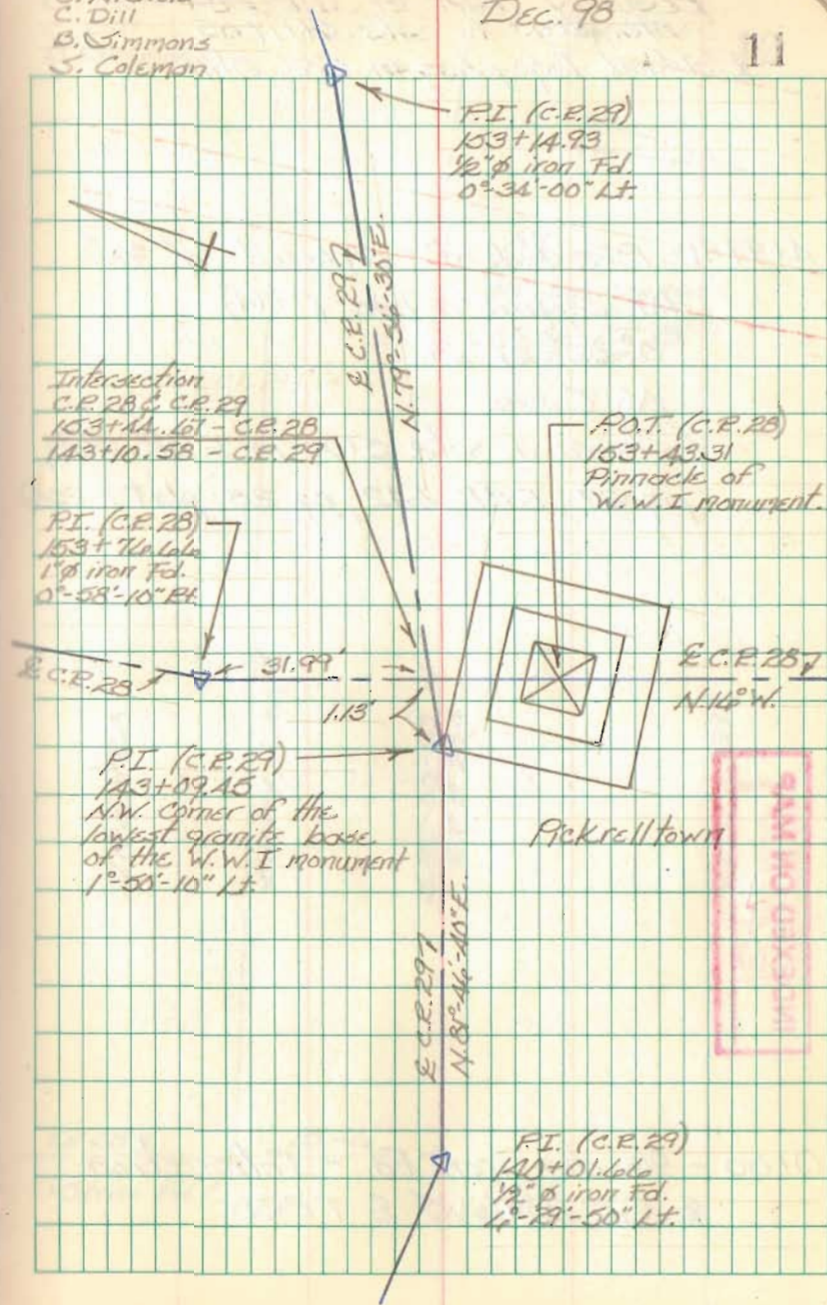 C. Dill
B. Simmons
S. Coleman
Dec. 98
11
P.I. (C.R. 29)
153+14.93
1/2"ø iron Fd.
0°-34'-00" Lt.
℄ C.R. 29
N. 79°-56'-30" E.
Intersection
C.R. 28 & C.R. 29
153+44.67 - C.R. 28
143+10.58 - C.R. 29
P.O.T. (C.R. 28)
153+43.31
Pinnacle of
W.W.I monument.
P.I. (C.R. 28)
153+76.66
1"ø iron Fd.
0°-58'-10" Rt.
℄ C.R. 28
31.99'
℄ C.R. 28
N. 16° W.
1.13'
P.I. (C.R. 29)
143+09.45
N.W. corner of the
lowest granite base
of the W.W.I monument
1°-50'-10" Lt.
Pickrelltown
INDEXED ON MAP
℄ C.R. 29
N. 81°-46'-40" E.
P.I. (C.R. 29)
140+01.66
1/2"ø iron Fd.
-29'-50" Lt.